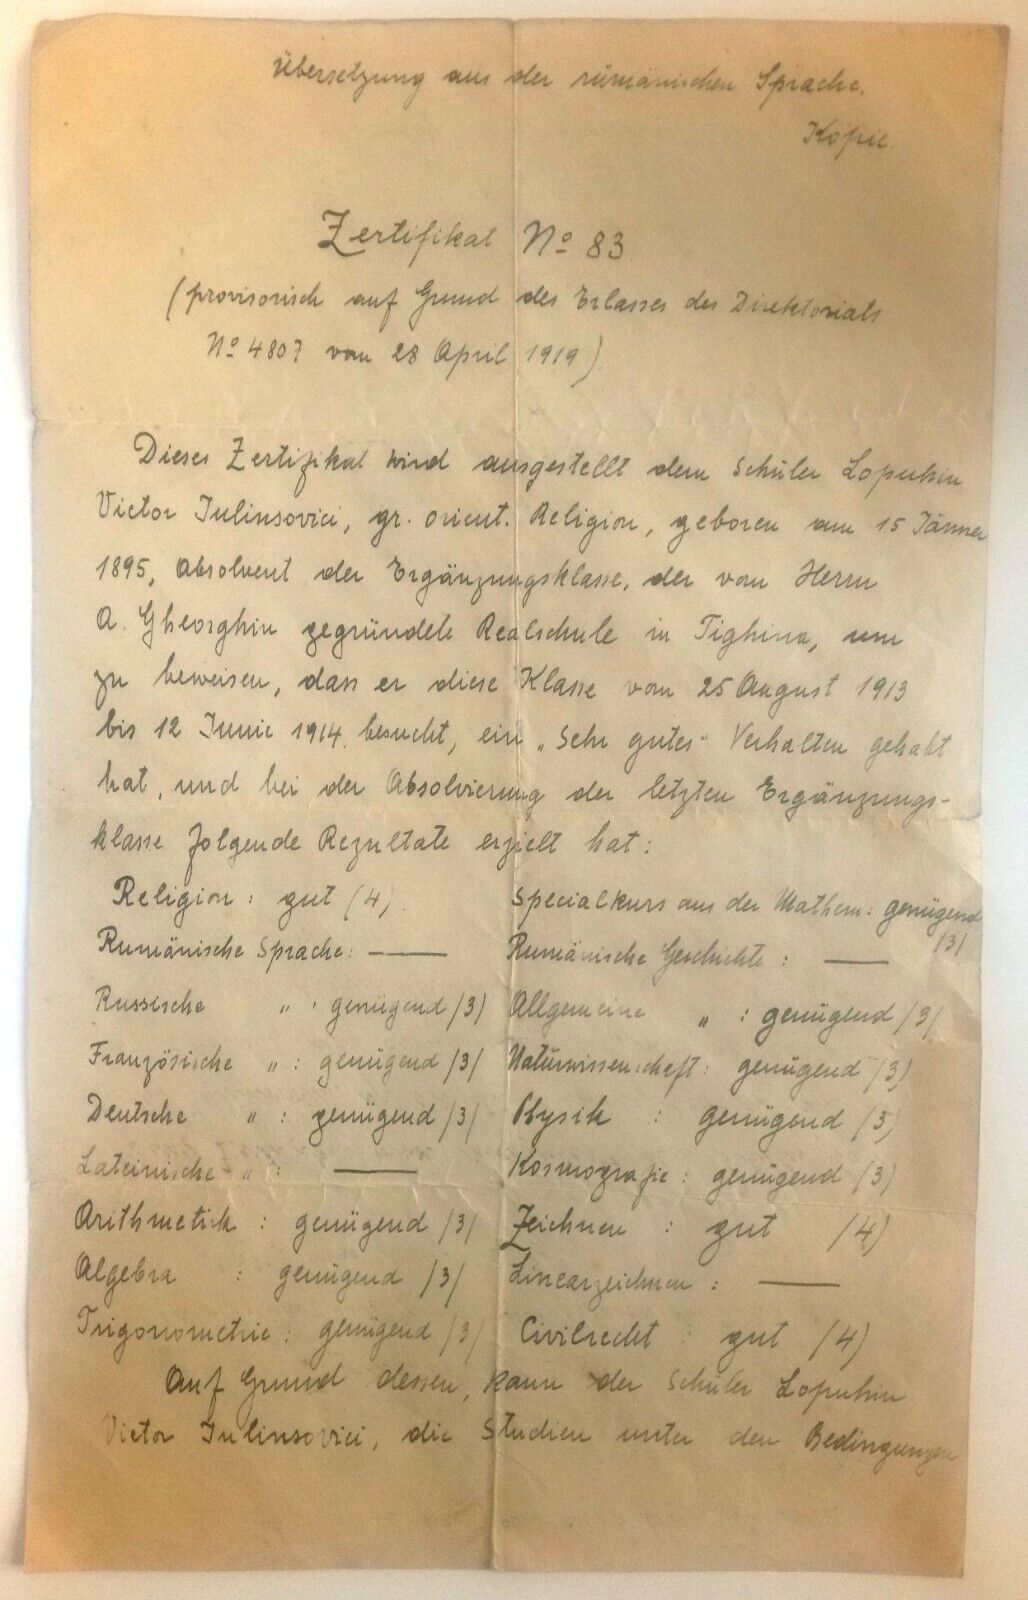 Übersetzung aus der rümänischen Sprache.
Kopie.
Zertifikat No 83
(provisorisch auf Grund des Erlasses des Direktoriats
No 4807 vom 28 April 1919)
Dieses Zertifikat wird ausgestellt dem Schüler Lopuhin
Victor Iuliusovici, gr. orient. Religion, geboren am 15 Jänner
1895, Absolvent der Ergänzungsklasse, der vom Herrn
A. Gheorghiu gegründete Realschule in Tighina, um
zu beweisen, dass er diese Klasse vom 25 August 1913
bis 12 Iunie 1914. besucht, ein „Sehr gutes" Verhalten gehabt
hat, und bei der Absolvierung der letzten Ergänzungs-
klasse folgende Rezultate erzielt hat:
Religion: gut (4).
Rumänische Sprache: —
Russische " : genügend /3)
Französische " : genügend /3/
Deutsche " : genügend /3/
Lateinische " : —
Arithmetik : genügend /3/
Algebra : genügend /3/
Trigonometrie: genügend /3/
Specialkurs aus der Mathem: genügend
/3/
Rumänische Geschichte: —
Allgemeine " : genügend /3/
Naturwissenschaft: genügend /3)
Physik : genügend /3)
Kosmografie: genügend (3)
Zeichnen : gut (4)
Linearzeichnen: —
Civilrecht : gut (4)
Auf Grund dessen, kann der Schüler Lopuhin
Victor Iuliusovici, die Studien unter den Bedingungen